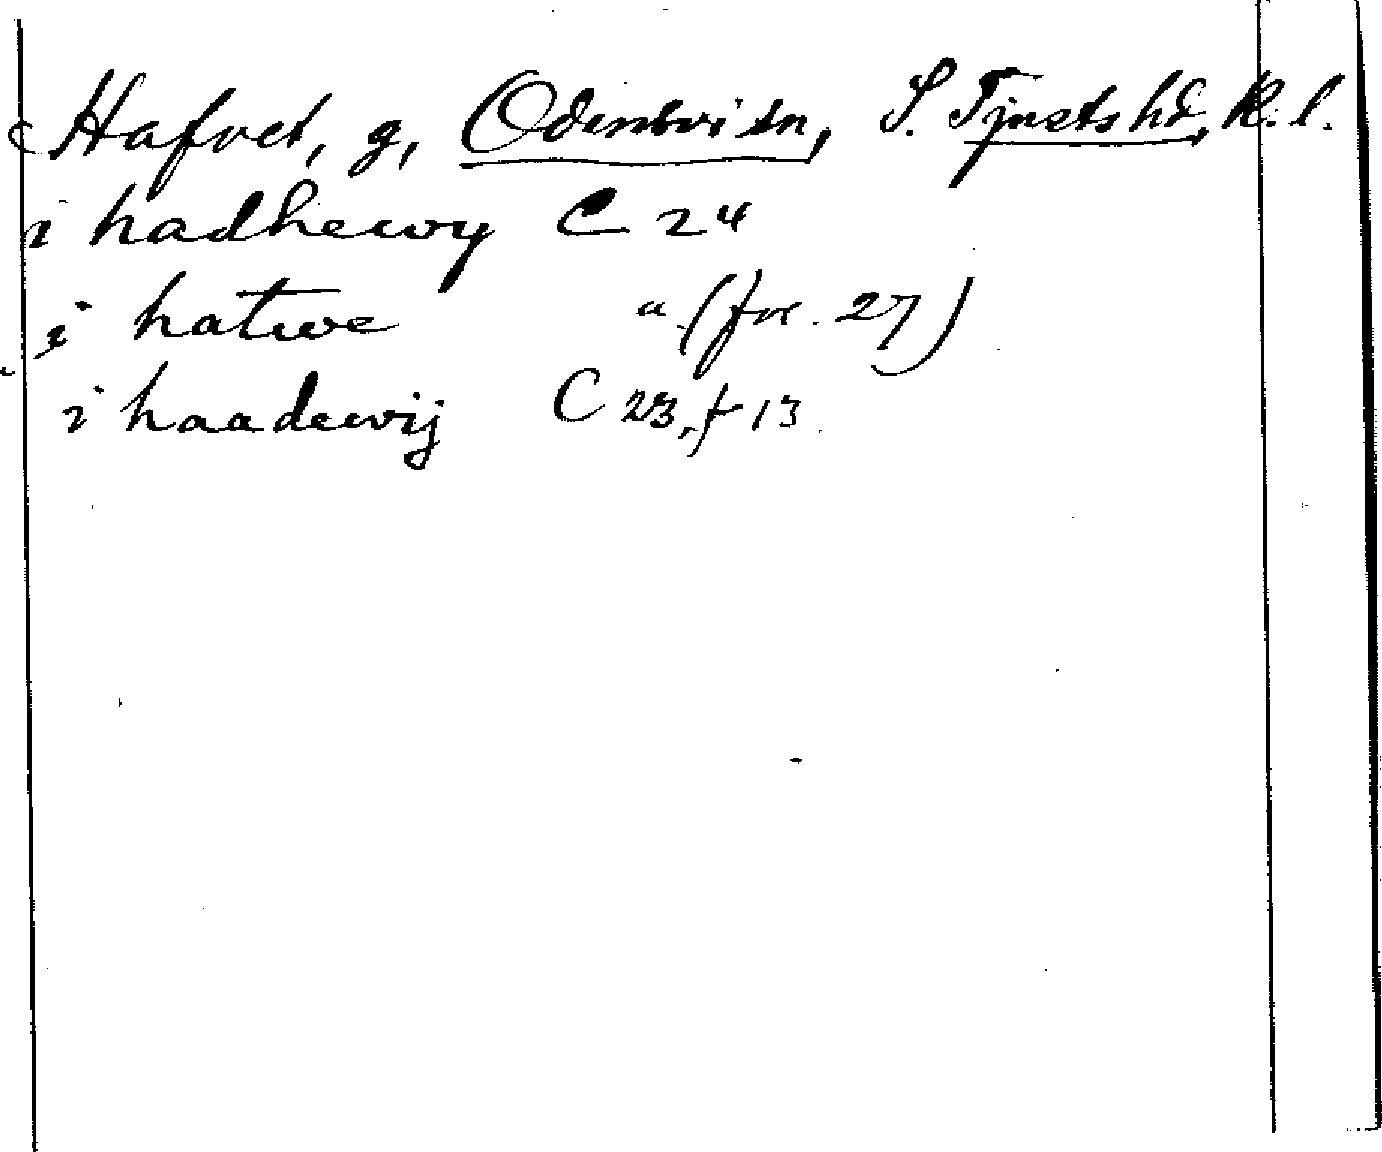 Hafvet, g, Odensvi sn, S. Tjusts hd, K. l.
i hadhewy C 24
i hatwe " (fol. 27)
i haadewij C 23, f 13